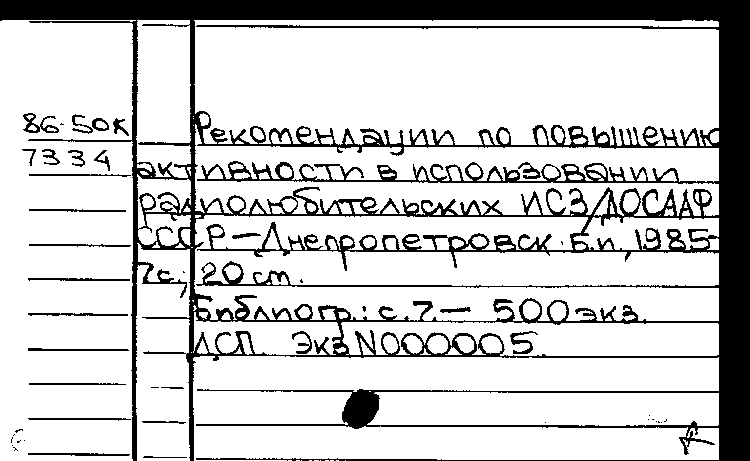 86-50К Рекомендации по повышению
7334 активности в использовании
радиолюбительских ИСЗ/ДОСААФ
СССР.—Днепропетровск: Б.и., 1985-
7с.; 20 cm.
Библиогр.: с.7.— 500 экз.
ДСП. Экз N000005.